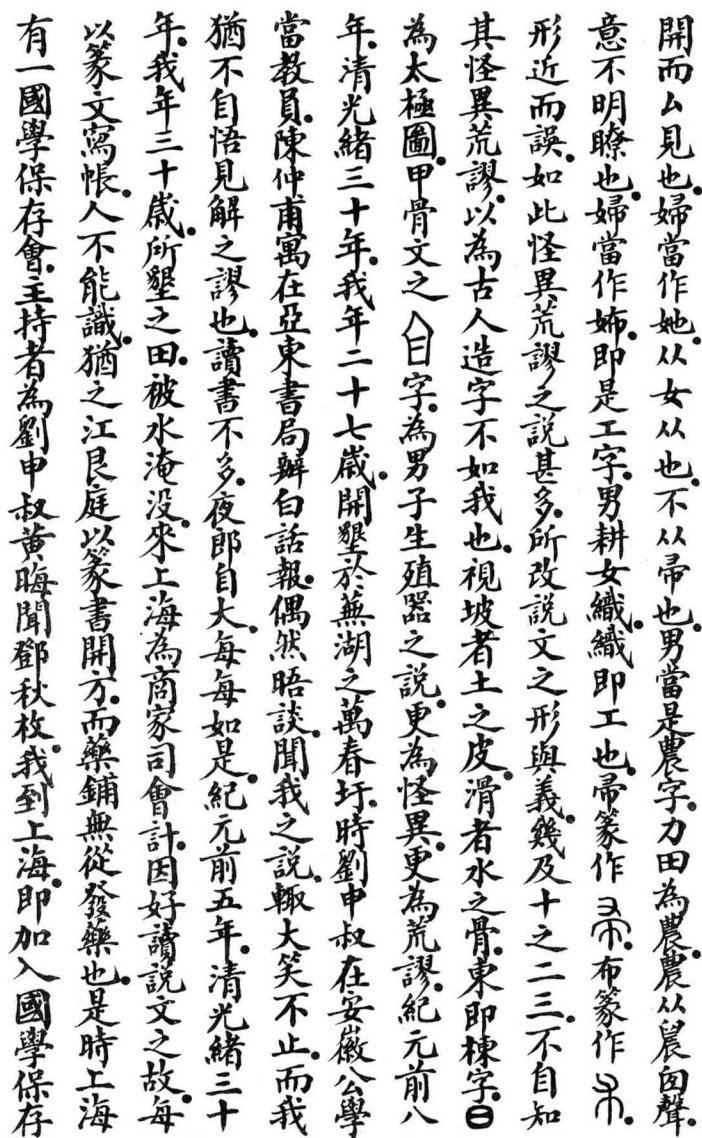 開而厶見也。婦當作她。从女从也。不从帚也。男當是農字。力田為農。農从晨囟聲。
意不明瞭也。婦當作姉。即是工字。男耕女織。織即工也。帚篆作。布篆作。
形近而誤。如此怪異荒謬之說甚多。所改說文之形與義。幾及十之二三。不自知
其怪異荒謬。以為古人造字不如我也。視坡者土之皮。滑者水之骨。東即棟字。日
為太極圖。甲骨文之字。為男子生殖器之說。更為怪異。更為荒謬。紀元前八
年。清光緒三十年。我年二十七歲。開墾於蕪湖之萬春圩。時劉申叔在安徽公學
當教員。陳仲甫寓在亞東書局辦白話報。偶然晤談。聞我之說。輙大笑不止。而我
猶不自悟見解之謬也。讀書不多。夜郎自大。每每如是。紀元前五年。清光緒三十
年。我年三十歲。所墾之田。被水淹没。來上海為商家司會計。因好讀說文之故。每
以篆文寫帳。人不能識。猶之江艮庭以篆書開方。而藥鋪無從發藥也。是時上海
有一國學保存會。主持者為劉申叔黄晦聞鄧秋枚。我到上海。即加入國學保存